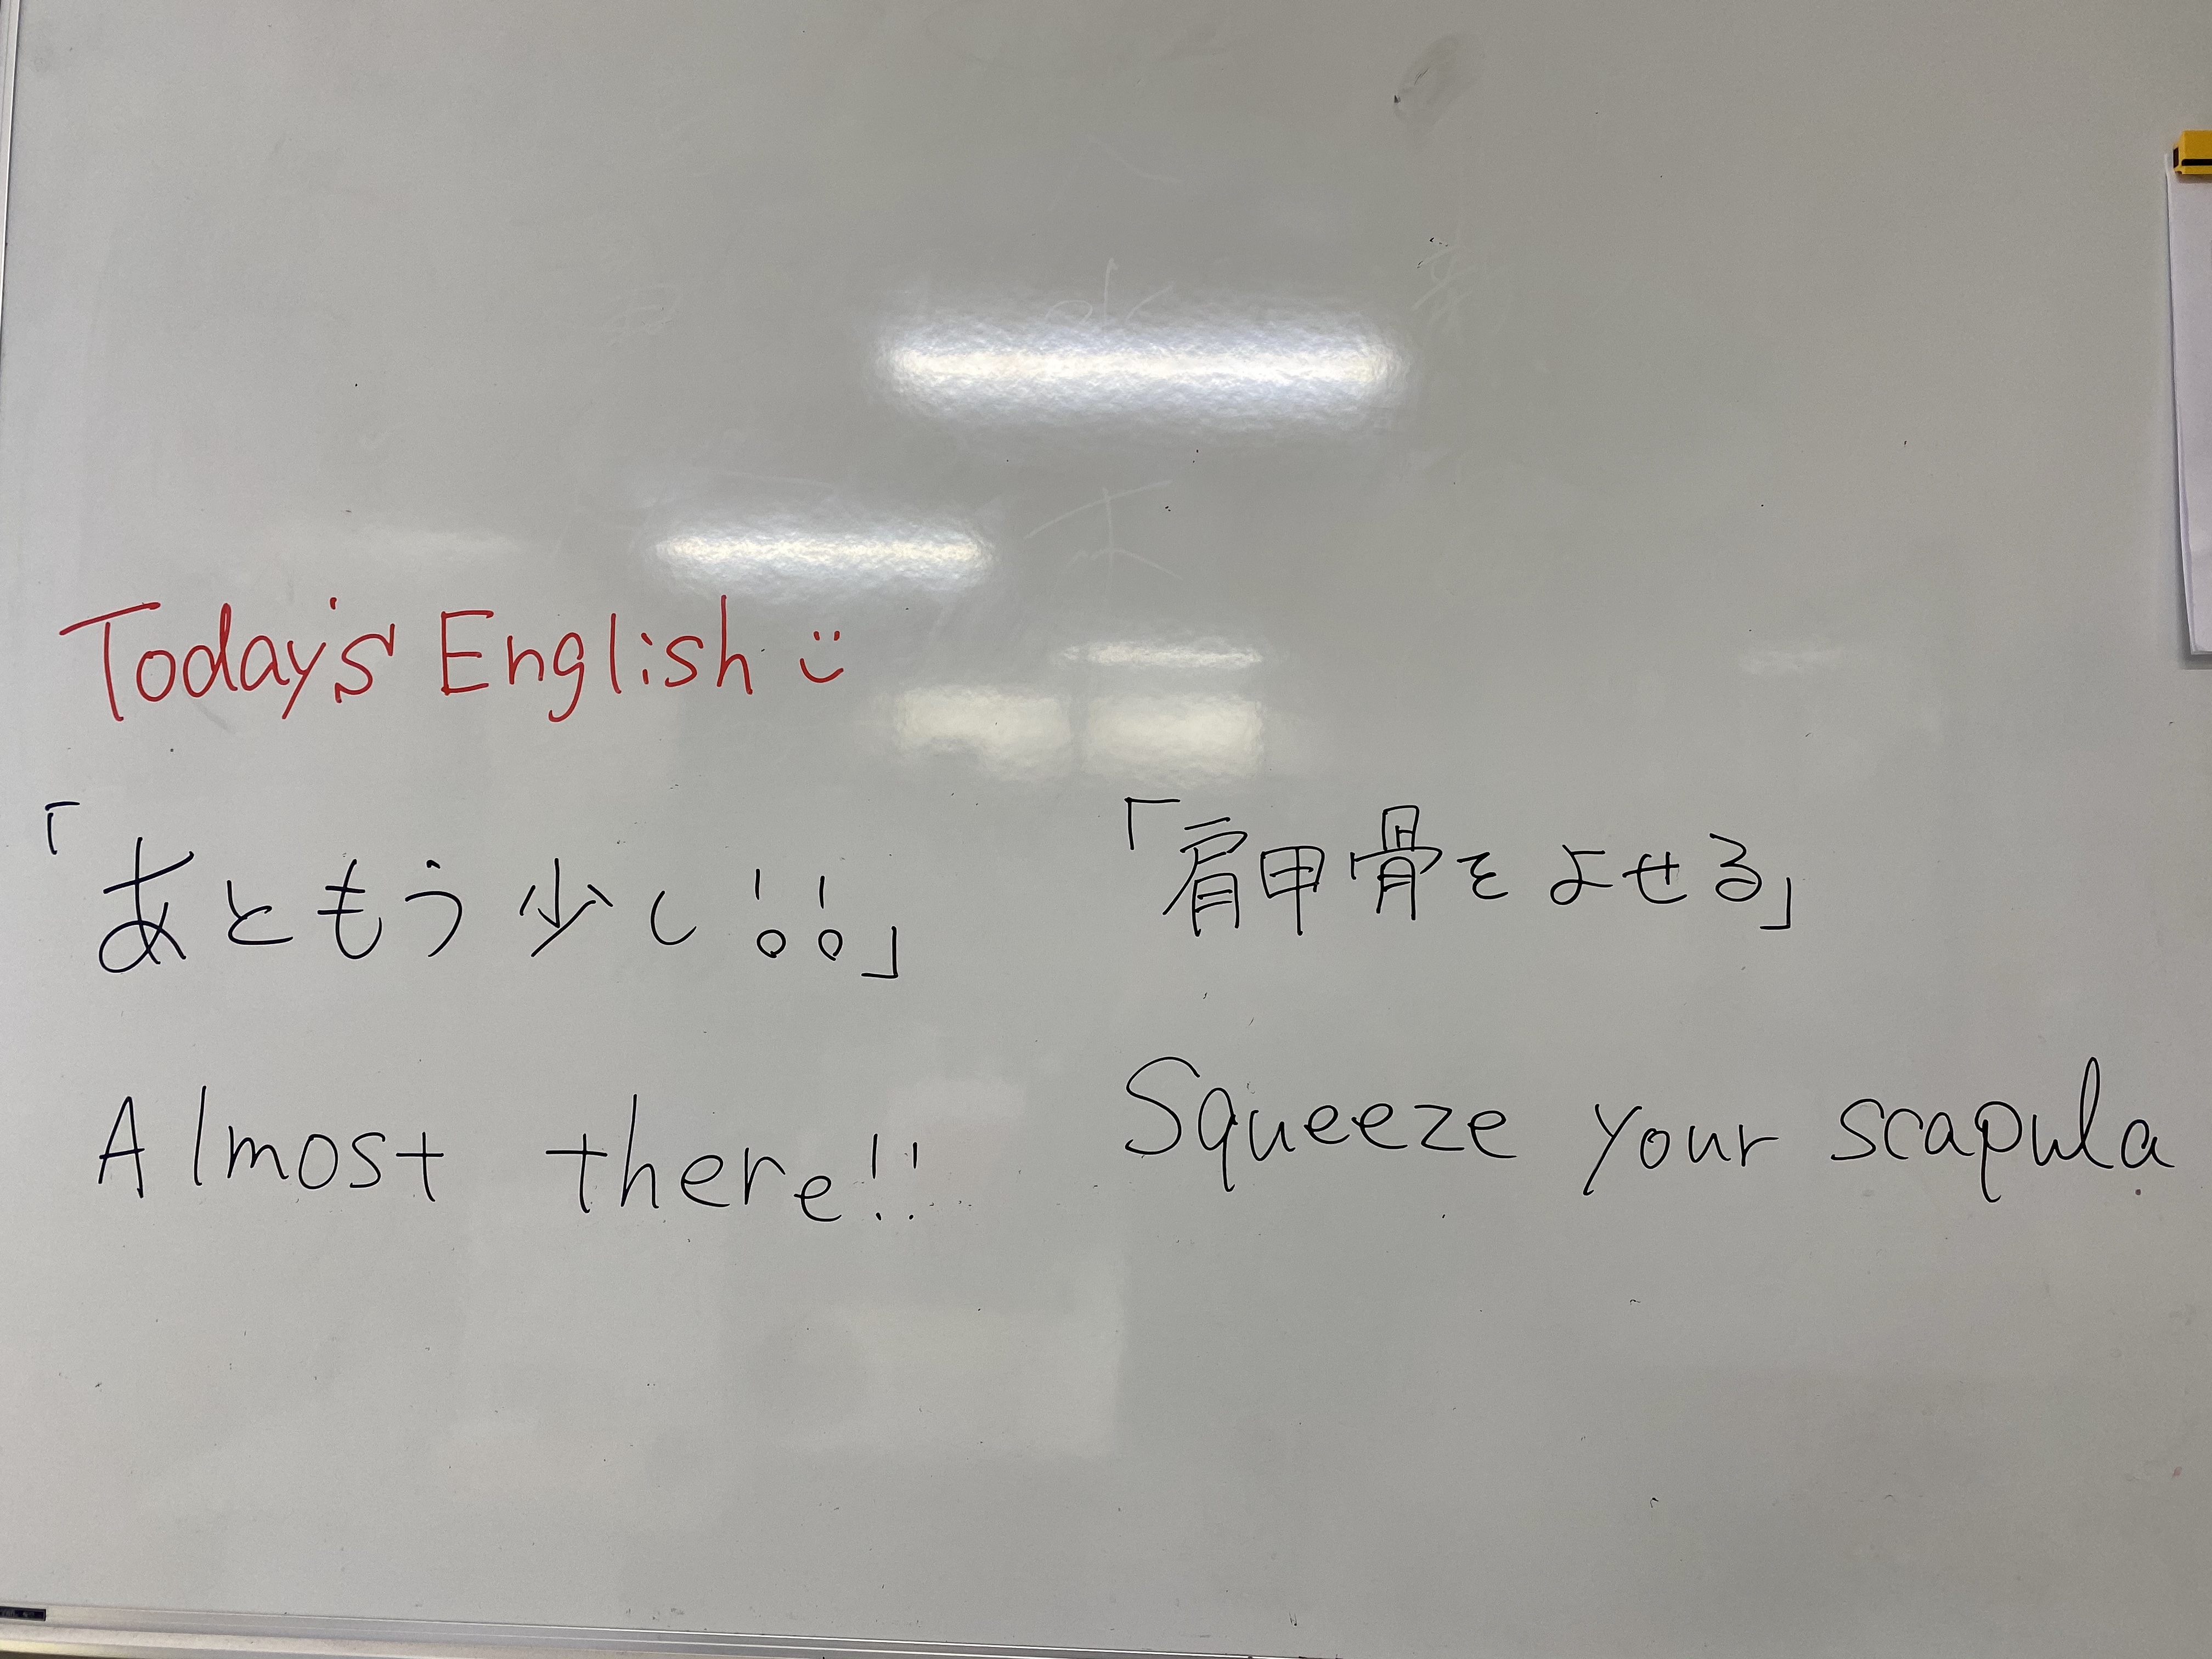 Today's English
「あともう少し!!」
Almost there!!
「肩甲骨をよせる」
Squeeze your scapula